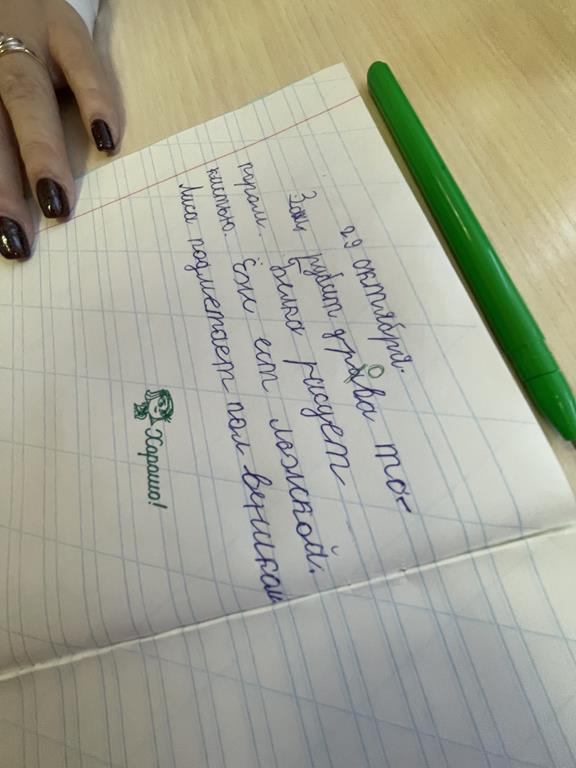 29 октября.
Заяц рубит дрова то-
пором. Белка рисует
кистью. Ёж ест ложкой.
Лиса подметает пол веником
Хорошо!